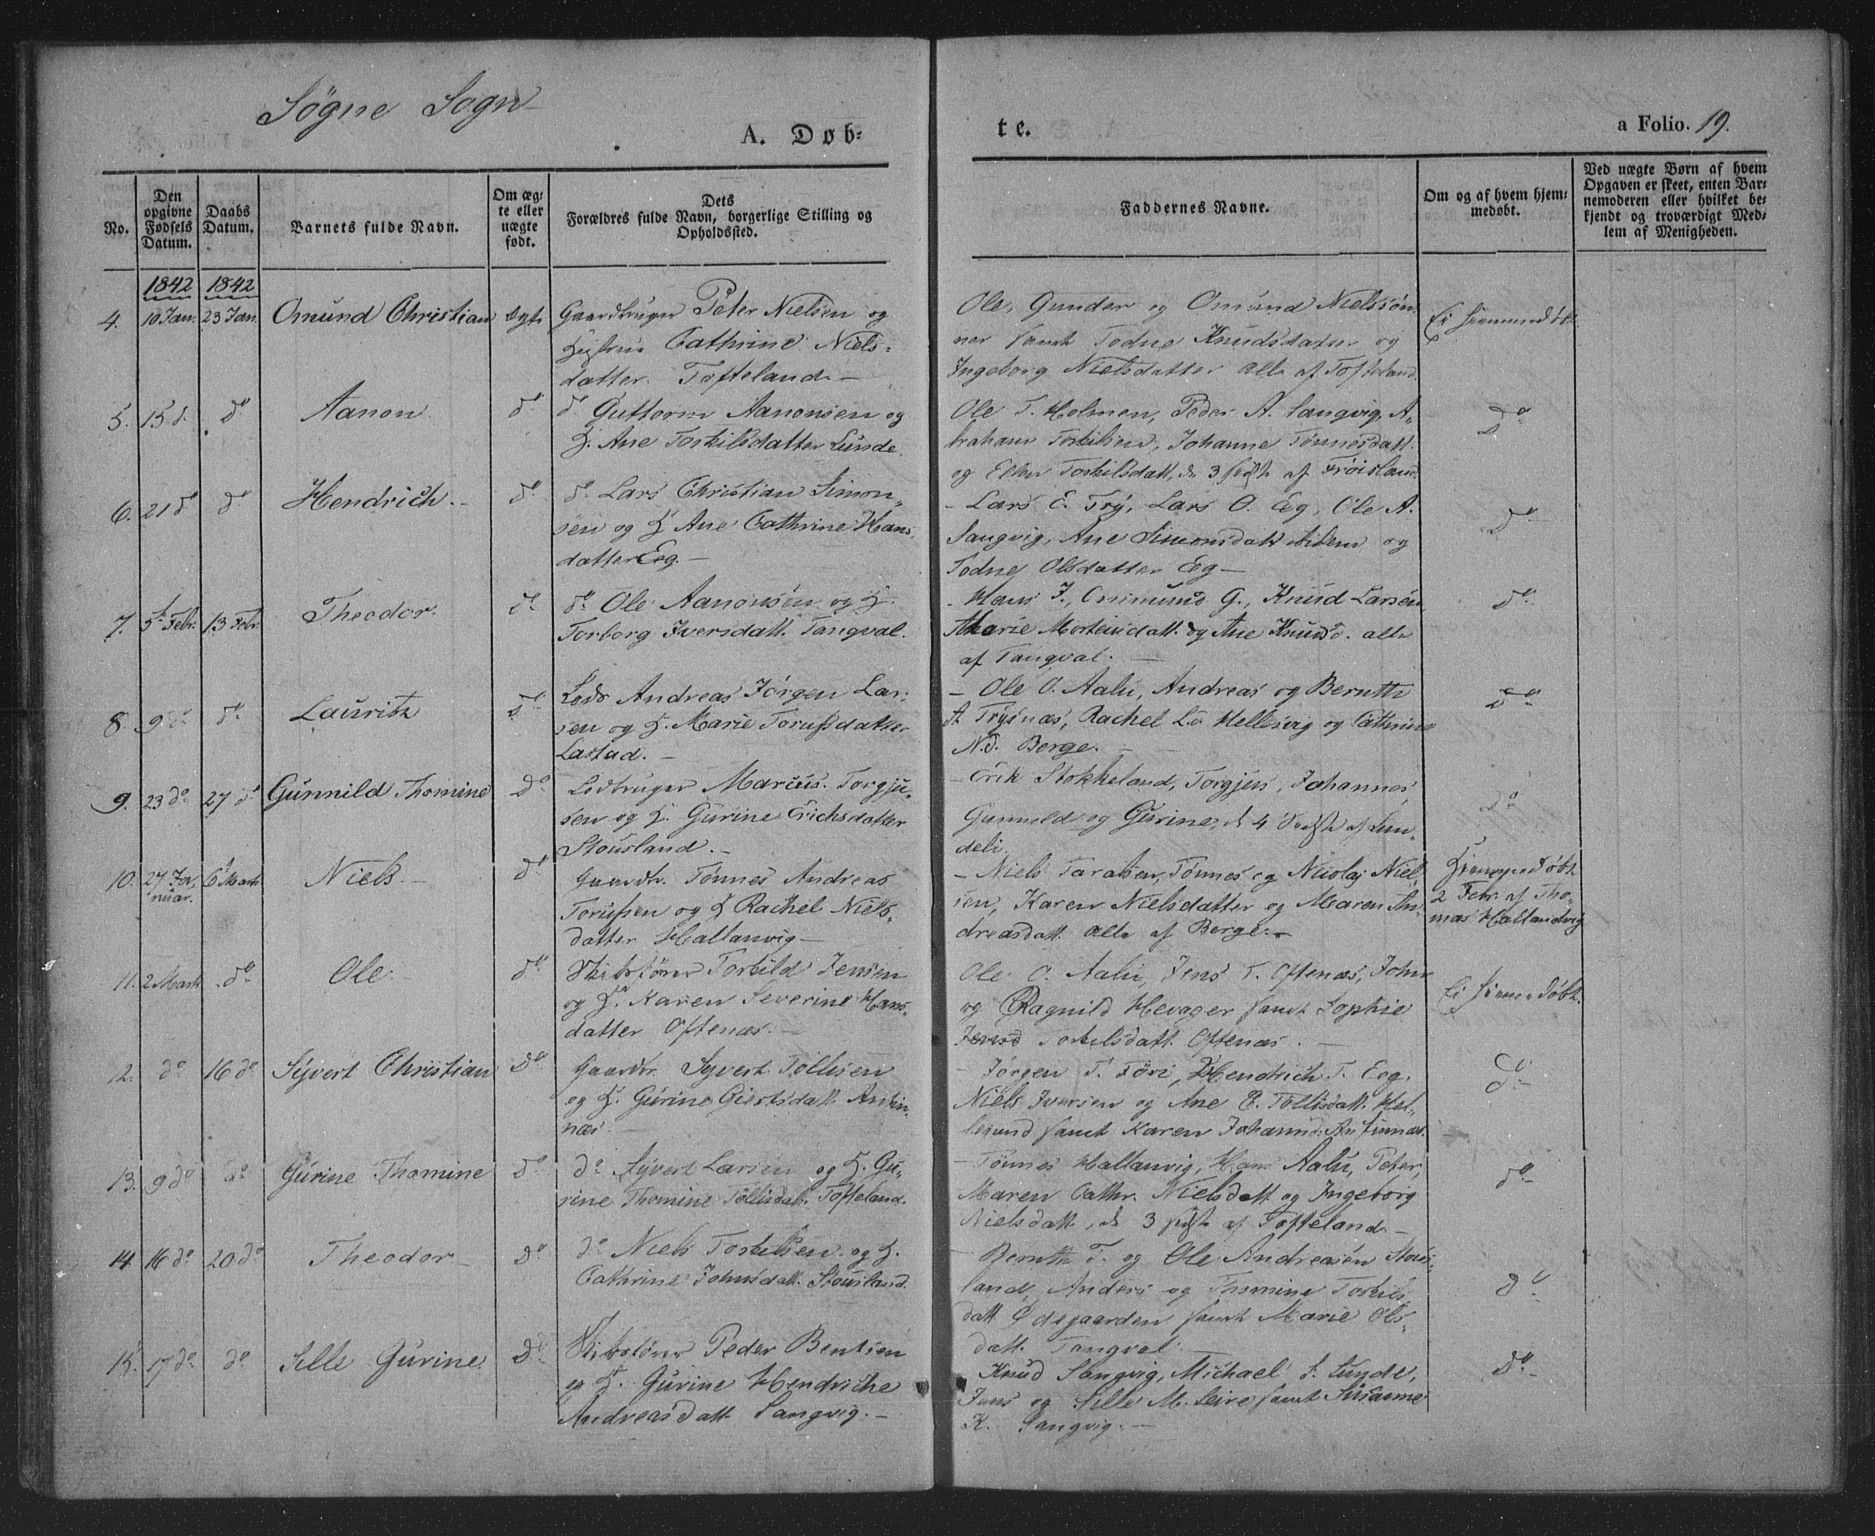 Søgne Sogn
A. Døb-
te.
a Folio. 19.
No.
Den opgivne Fødsels Datum.
Daabs Datum.
Barnets fulde Navn.
Om ægte eller nægte født.
Dets
Forældres fulde Navn, borgerlige Stilling og
Opholdssted.
Faddernes Navne.
Om og af hvem hjem-
medøbt.
Ved nægte Børn af hvem
Opgaven er skeet, enten Bar-
nemoderen eller hvilket be-
kjendt og troværdigt Med-
lem af Menigheden.
1842 1842
4. 10 Jan. 23 Jan. Omund Christian ægte Gaardbruger Peter Nielsen og
Hustrue Cathrine Niels-
datter Tofteland. —
Ole, Gunder og Omund Nielssøn-
ner samt Todne Knudsdatter og
Ingeborg Nielsdatter alle af Tofteland.
Ei hjemmedøbt.
5. 15 d. do Aanon. do do Guttorm Aanonsen og
H. Ane Torkilsdatter Lunde.
Ole T. Holmen, Peder A. Langvig, A-
braham Torkilsen, Johanne Tønnesdatt.
og Ellen Torkilsdatt. de 3 sidste af Frøisland.
Do
6. 21 do do Hendrich. do do Lars Christian Simon-
sen og H. Ane Cathrine Hans-
datter Eeg. —
Lars E. Try, Lars O. Eeg, Ole A.
Langvig, Ane Simonsdatt. og
Todne Olsdatter Eeg —
Do
7. 5t Febr. 13 Febr. Theodor. do do Ole Aanonsen og H.
Torborg Iversdatt. Tangval.
Hans J., Ommund G., Knud Larsen
Marie Mortensdatt. og Ane Knudsd. alle
af Tangval. —
Do
8. 9 do do Lauritz do Lods Andreas Jørgen Lar-
sen og H. Marie Torussdatter
Lastad. —
Ole O. Aalu, Andreas og Berutte
A. Trysnæs, Rachel L. Hellesvig og Cathrine
N.d. Berge. —
Do
9. 23 do 27 do Gunnild Thomine Do Ledbruger Marcus Torgju-
sen og H. Gurine Erichsdatter
Stousland. —
Erik Stokkeland, Torgjus, Johannes,
Gunnild og Gurine, de 4 sidste af Lun-
deli.
Do
10. 27 Ja-
nuar. 6 Marts Niels. — do Gaardbr. Tønnes Andreas
Torussen og H. Rachel Niels-
datter Hallanvig —
Niels Taralsen, Tønnes og Nicolaj Niel-
sen, Karen Nielsdatter og Maren An-
dreasdatt. alle af Berge. —
Hjemmedøbt
2 Febr. af Tho-
mas Hallandvig
11. 2 Marts do Ole. do Torkild Jensen
og H. Karen Severine Hans-
datter Oftenæs. —
Ole O. Aalu, Jens T. Oftenæs, John
og Ragnild Hevager samt Sophie
Torkilsdatt. Oftenæs. —
Ei hjemmedøbt.
12. do 16 do Syvert Christian do Gaardbr. Syvert Tollisen
og H. Gurine Giertsdatt.
næs —
Jørgen T. Føre, Hendrich T. Eeg.
Niels Iversen og Ane E. Tollisdatt. Hel-
lesund samt Karen Johannd.
do
13. 9 do do Gurine Thomine do do Syvert Larsen og H. Gu-
rine Thomine Tollisdatt. Tofteland.
Tønnes Hallanvig, Hans Aalu, Peter,
Maren Cathr. Nielsdatt og Ingeborg
Nielsdatt., de 3 sidste af Tofteland. —
do
14. 16 do 20 do Theodor — do do Niels Torkilsen og H.
Cathrine Johnsdatt. Stousland.
Berutte T. og Ole Andreasen Stous-
land, Anders og Thomine Torkils-
datt. Ødegaarden samt Marie Ols-
datt. Tangval. —
do
15. 17 do do Sille Gurine. do Peder Bentsen
og H. Gurine Hendrikke
Andreasdatt. Langvig. —
Knud Langvig, Michael A. Lunde,
Jens og Sille M. Leire samt Susanne
K. Langvig. —
do